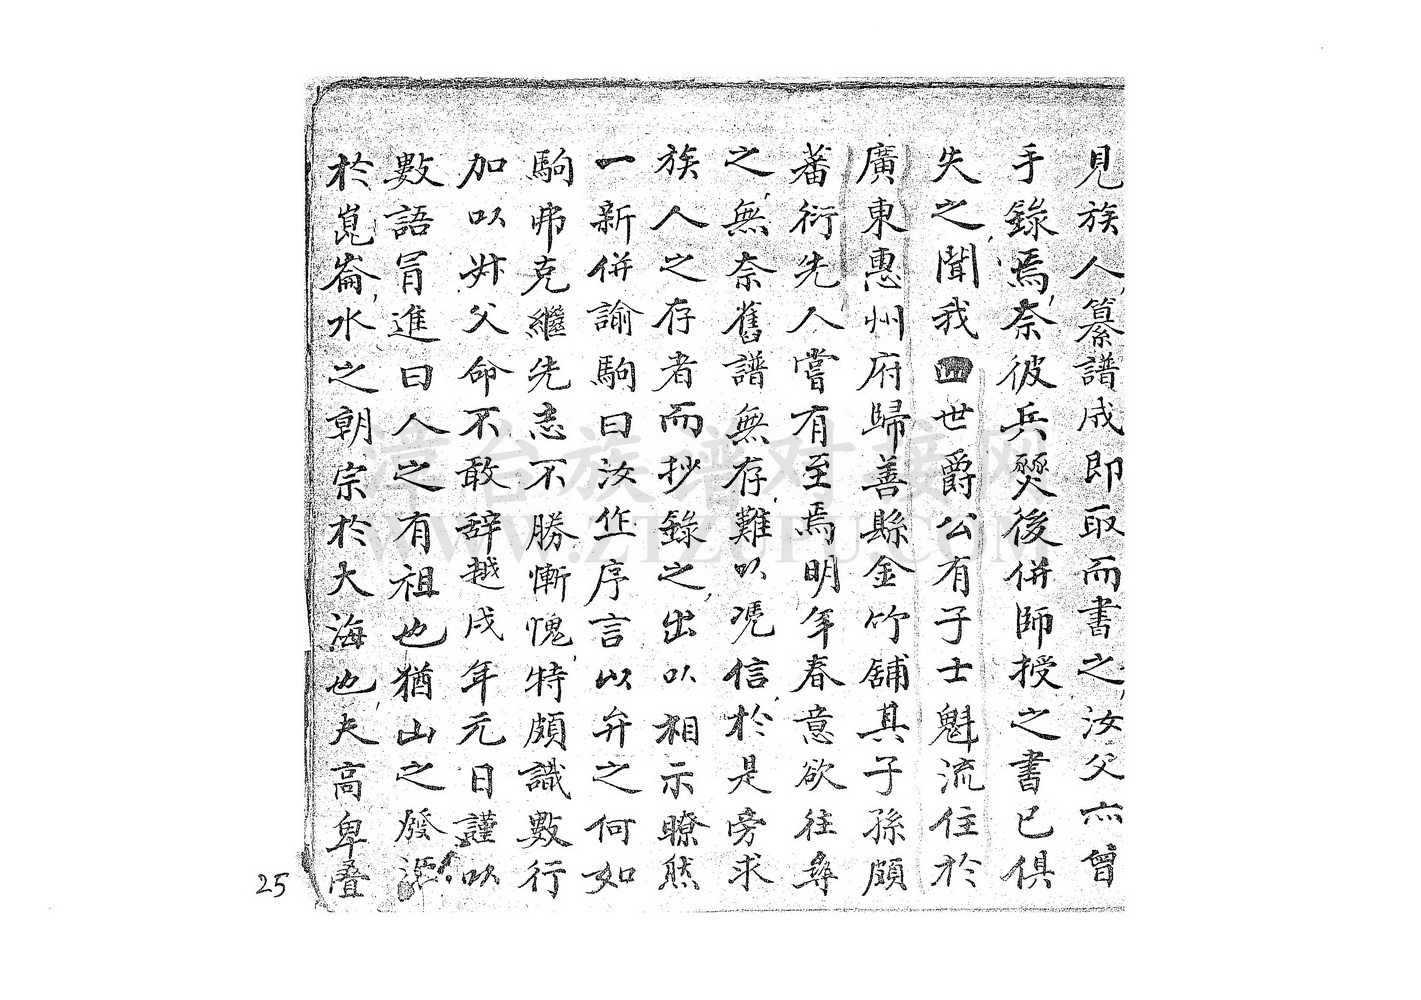 見族人纂譜成即取而書之汝父亦曾
手錄焉奈彼兵燹後併師授之書已俱
失之聞我四世爵公有子士魁流住於
廣東惠州府歸善縣金竹舖其子孫頗
蕃衍先人嘗有至焉明年春意欲往尋
之無奈舊譜無存難以凭信於是旁求
族人之存者而抄錄之出以相示瞭然
一新併諭駒曰汝作序言以弁之何如
駒弗克繼先志不勝慚愧特頗識數行
加以奸父命不敢辞越戌年元日謹以
數語冐進曰人之有祖也猶山之發源
於崑崙水之朝宗於大海也夫高卑叠
25
漳台族谱对接网
WWW.ZTZUPU.COM